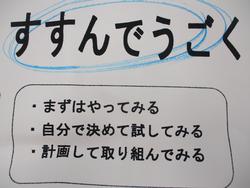 すすんでうごく
・まずはやってみる
・自分で決めて試してみる
・計画して取り組んでみる